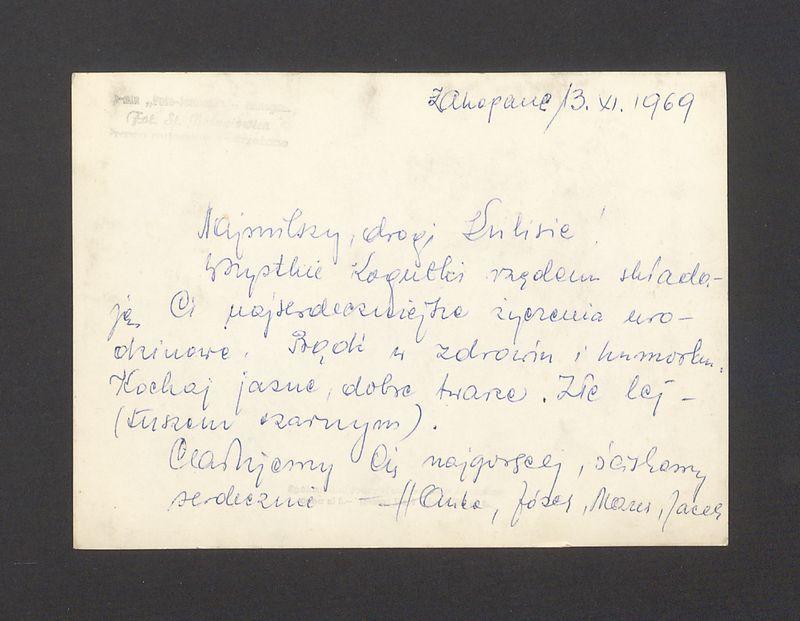 Zakopane, 13. XI. 1969
Najmilszy, drogi Lulisie!
Wszystkie Kogutki rzędem składa-
ją Ci najserdeczniejsze życzenia uro-
dzinowe. Bądź w zdrowiu i humorku.
Kochaj jasne, dobre twarze. Złe lej -
(tuszem czarnym).
Całujemy Cię najgoręcej, ściskamy
serdecznie - Hanka, Józek, Marek, Jacek